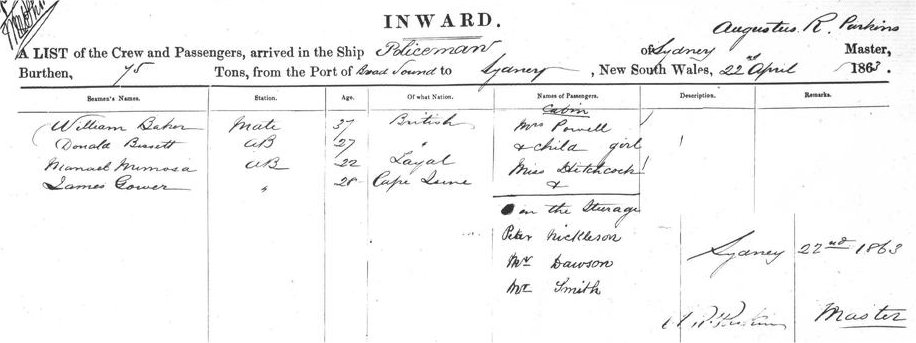 INWARD.
Augustus R. Parkins
A LIST of the Crew and Passengers, arrived in the Ship Policeman of Sydney Master,
Burthen, 75 Tons, from the Port of Broad Sound to Sydney, New South Wales, 22nd April 1863.
Seamen's Names. Station. Age. Of what Nation. Names of Passengers. Description. Remarks.
Cabin
William Baker Mate 37 British Mrs Powell
Donald Bissett AB 27 " & child girl
Manuel Mimosa AB 22 Miss Hitchcock
James Gower " 28 Cape &
in the Sturage
Peter Nickleson
Mr Dawson
Mr Smith
Sydney 22nd 1863
Master